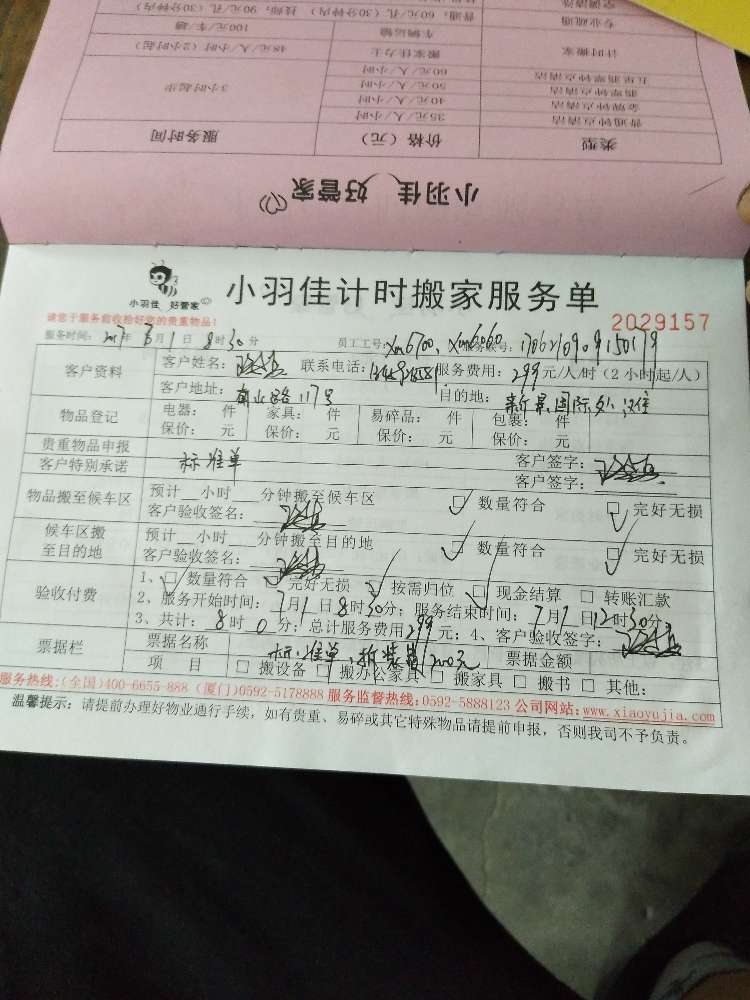 空调清洗
专业疏通 普通：60元/孔（30分钟内） 技师：90元/孔（30分钟内）
车辆运输 100元/车/趟
计时搬家 搬家佳力士 48元/人/小时（2小时起）
五星翡翠钟点清洁 60元/人/小时
翡翠钟点清洁 50元/人/小时 3小时起步
金牌钟点清洁 40元/人/小时
普通钟点清洁 35元/人/小时
类型 价格（元） 服务时间
小羽佳 好管家
小羽佳 好管家
小羽佳计时搬家服务单
请您于服务前收检好您的贵重物品！
2029157
服务时间：2017年 月1日8时30分 员工工号：xm6700、xm6060 服务账号：
客户资料 客户姓名： 联系电话： 服务费用：299元/人/时（2小时起/人）
客户地址： 路117号 目的地：新景国际外滩
物品登记 电器： 件 家具： 件 易碎品： 件 包裹： 件
保价： 元 保价： 元 保价： 元 保价： 元
贵重物品申报 客户签字：
客户特别承诺 标准单 客户签字：
物品搬至候车区 预计__小时__分钟搬至候车区 数量符合 完好无损
客户验收签名：
候车区搬至目的地 预计__小时__分钟搬至目的地 数量符合 完好无损
客户验收签名：
验收付费 1、数量符合 完好无损 按需归位 现金结算 转账汇款
2、服务开始时间：7月1日8时30分；服务结束时间：7月1日12时30分
3、共计：8时0分；总计服务费用299元；4、客户验收签字：
票据栏 票据名称 标准单，拆装 200元 票据金额
项 目 搬设备 搬办公家具 搬家具 搬书 其他：
服务热线：(全国)400-6655-888 (厦门)0592-5178888 服务监督热线：0592-5888123 公司网站：www.xiaoyujia.com
温馨提示：请提前办理好物业通行手续，如有贵重、易碎或其它特殊物品请提前申报，否则我司不予负责。